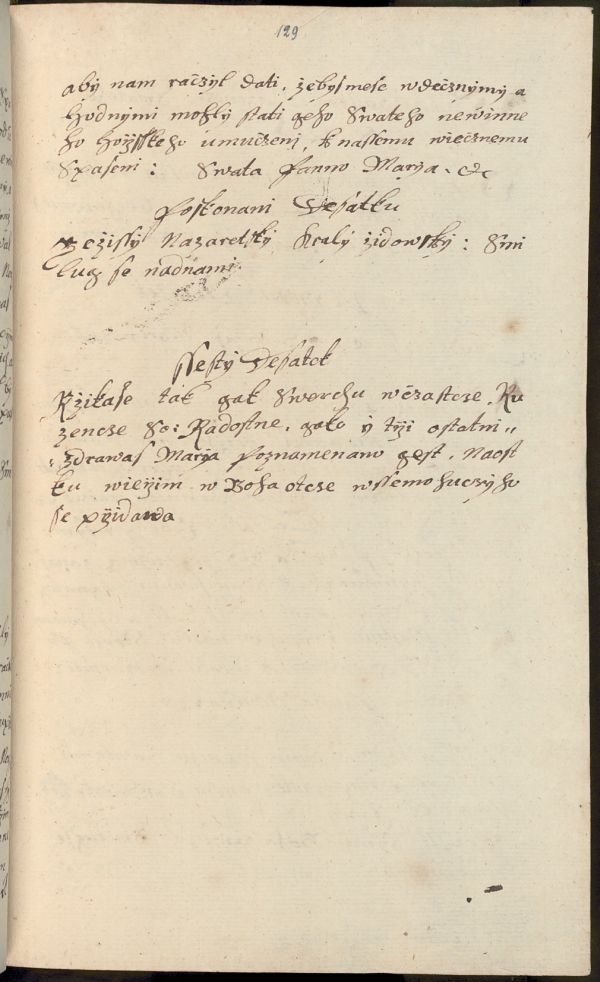 129
abÿ nam račzÿl dati, žebÿsmese wdečznÿmÿ a
hodnÿmi mohlÿ stati geho Swateho newinne
ho horžskeho umučzeni, k nassemu wiecznemu
Spaseni: Swata Panno Marÿa. etc
Poskonani Desatku
Gežissÿ Nazaretskÿ Kralÿ židowskÿ: Smi
lug se nadnami.
ssestÿ Desatek
Ržikase tak gak Swerchu wčzastcze. Ru
zencze So: Radostne, gako ÿ tržÿ ostatni
zdrawas Marÿa Poznamenano gest. Naost
ku wieržim w Boha otcze wssemohuczÿho
se pržidawa